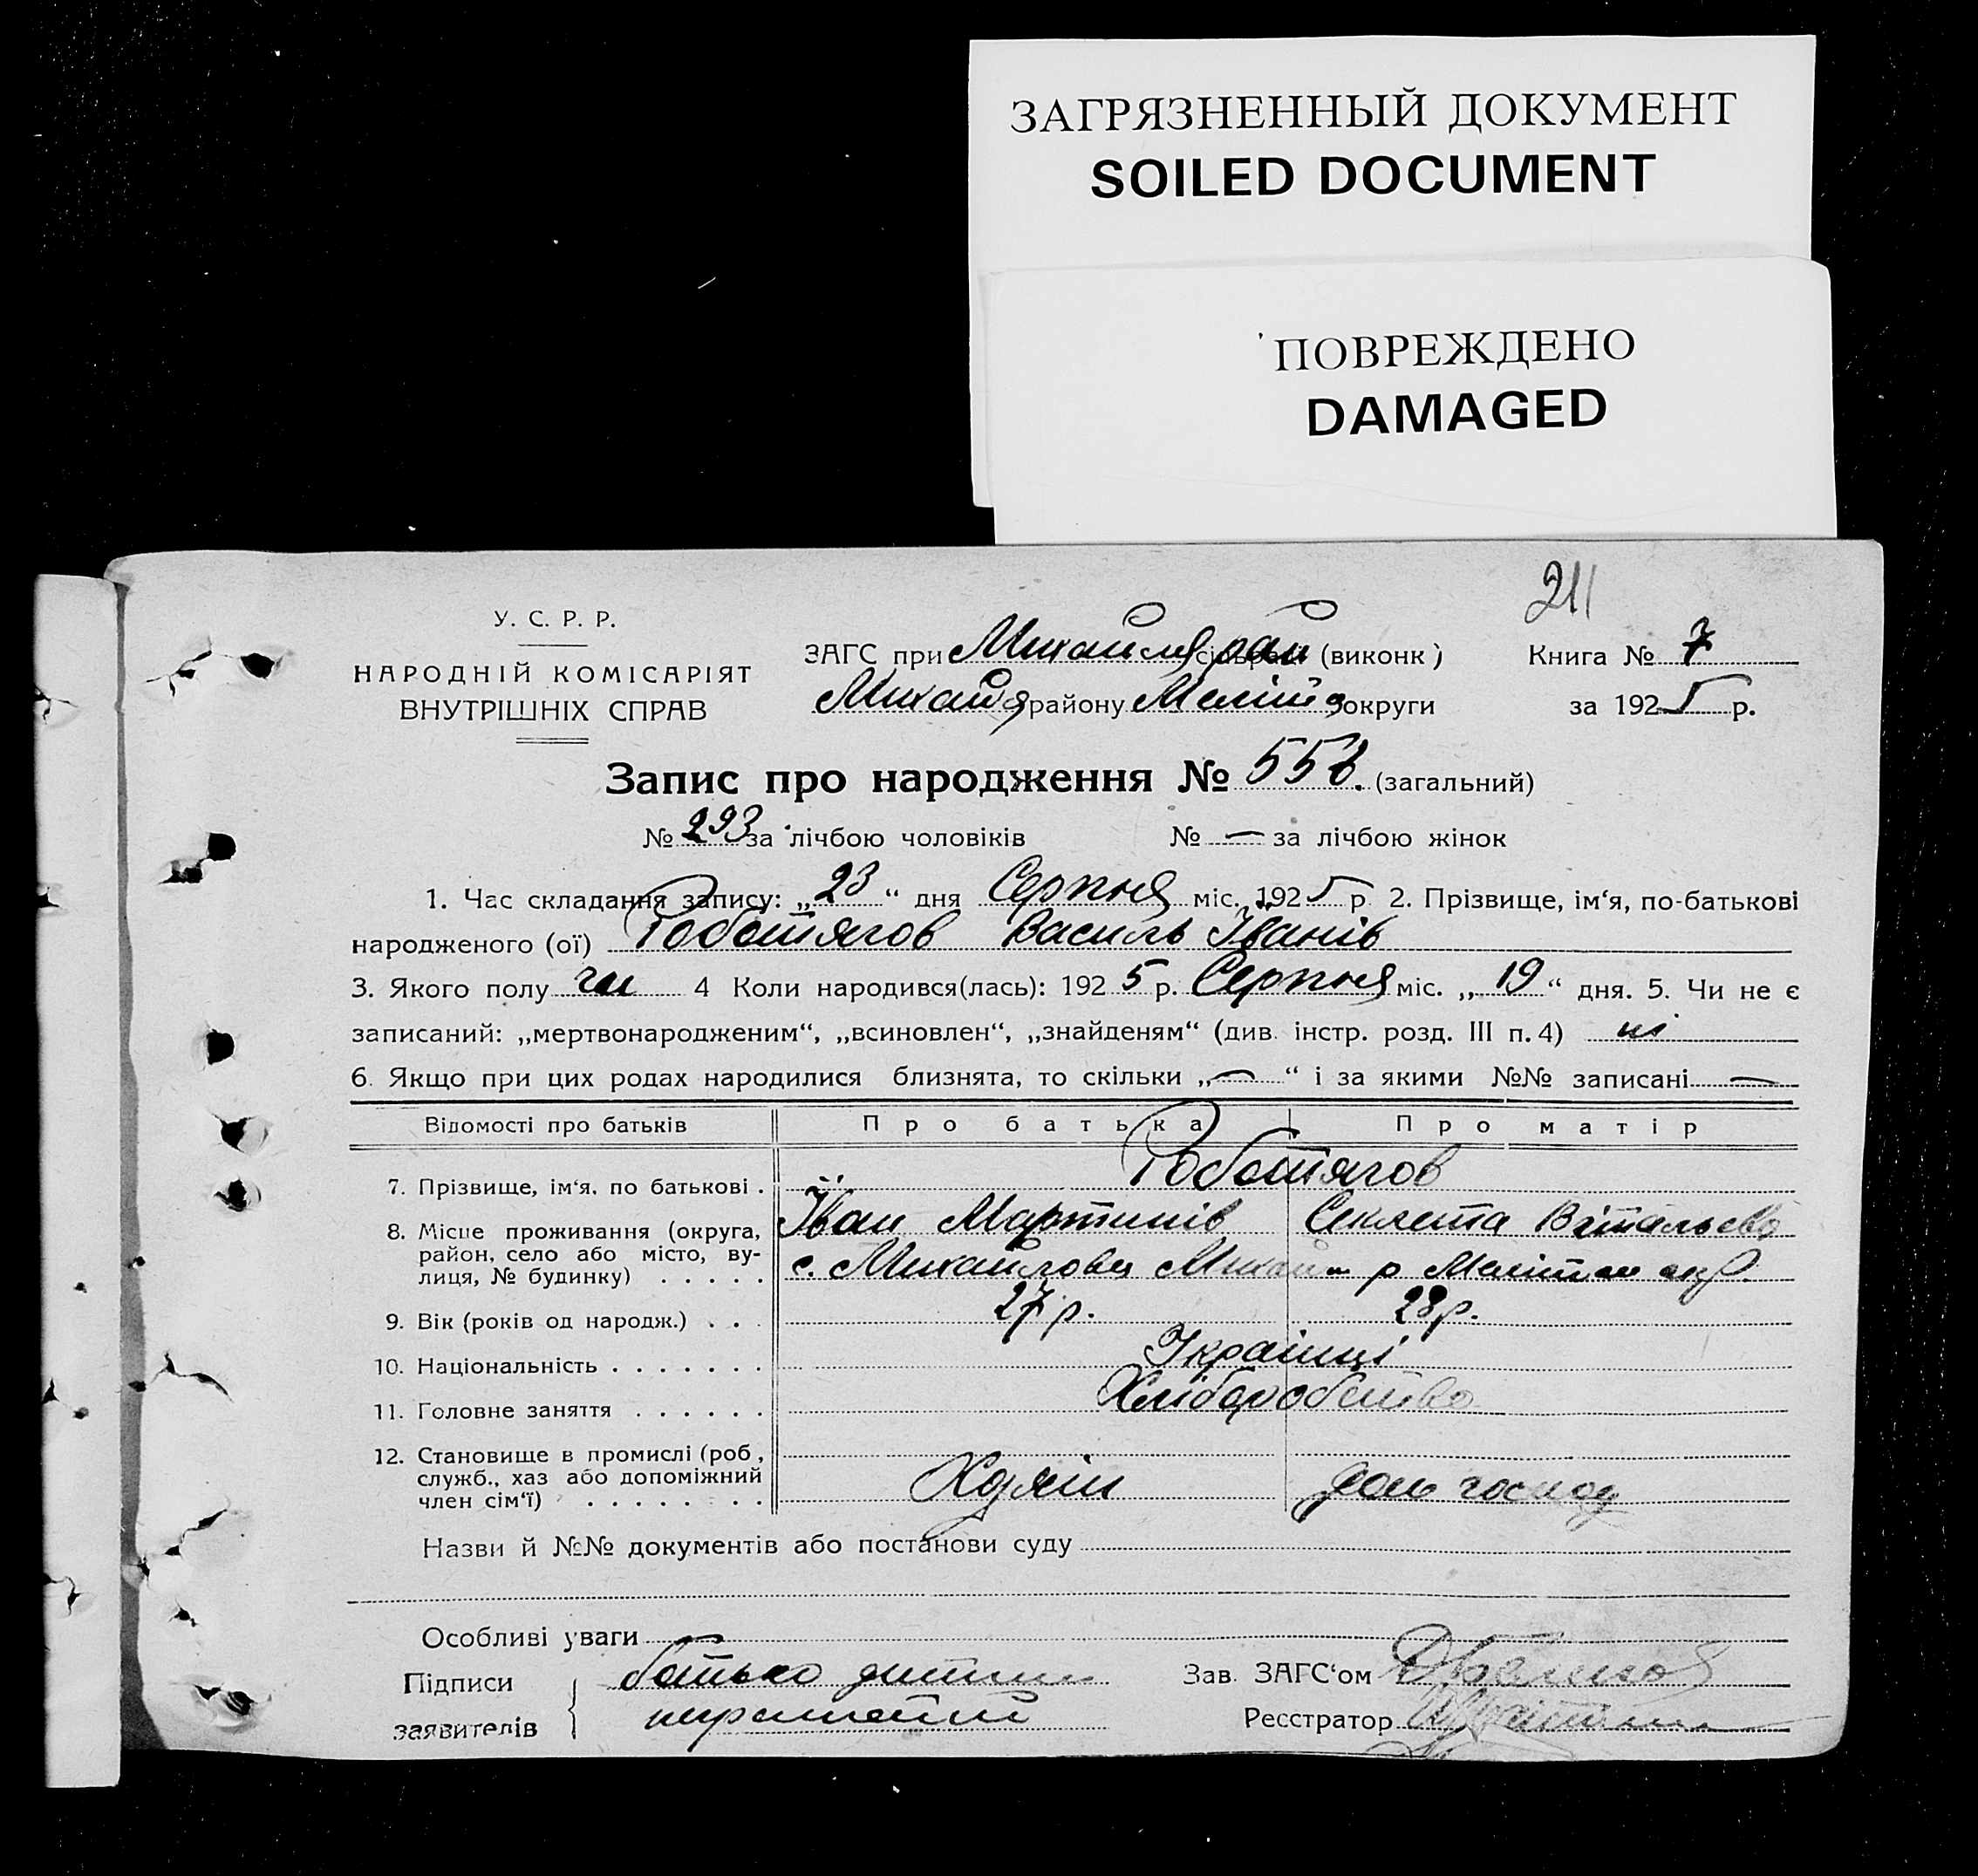 ЗАГРЯЗНЕННЫЙ ДОКУМЕНТ
SOILED DOCUMENT
ПОВРЕЖДЕНО
DAMAGED
211
У. С. Р. Р.
НАРОДНІЙ КОМІСАРІЯТ
ВНУТРІШНІХ СПРАВ
ЗАГС при (виконк)
району округи
Книга № 7
за 1925 р.
Запис про народження № 558. (загальний)
№ 293 за лічбою чоловіків № — за лічбою жінок
1. Час складання запису: „23“ дня Серпня міс. 1925 р. 2. Прізвище, ім‘я, по-батькові
народженого (ої) Роботягов Василь Іванів
3. Якого полу чол 4 Коли народився(лась): 1925 р. Серпня міс. „19“ дня. 5. Чи не є
записаний: „мертвонародженим“, „всиновлен“, „знайденям“ (див. інстр. розд. III п. 4) ні
6. Якщо при цих родах народилися близнята, то скільки „—“ і за якими №№ записані —
Відомості про батьків Про батька Про матір
7. Прізвище, ім‘я, по батькові . Роботягов
Іван Мартинів Секлета
8. Місце проживання (округа,
район, село або місто, ву-
лиця, № будинку) . . . . . с. Михайловка
9. Вік (років од народж.) . . . 27 р. 28 р.
10. Національність . . . . . . . Українці
11. Головне заняття . . . . . . Хлібаробство
12. Становище в промислі (роб.,
служб., хаз або допоміжний
член сім‘ї) . . . . . . . Хазяін Дом господ
Назви й №№ документів або постанови суду
Особливі уваги
Підписи
заявителів
батько дитини
Зав. ЗАГС‘ом
Реєстратор